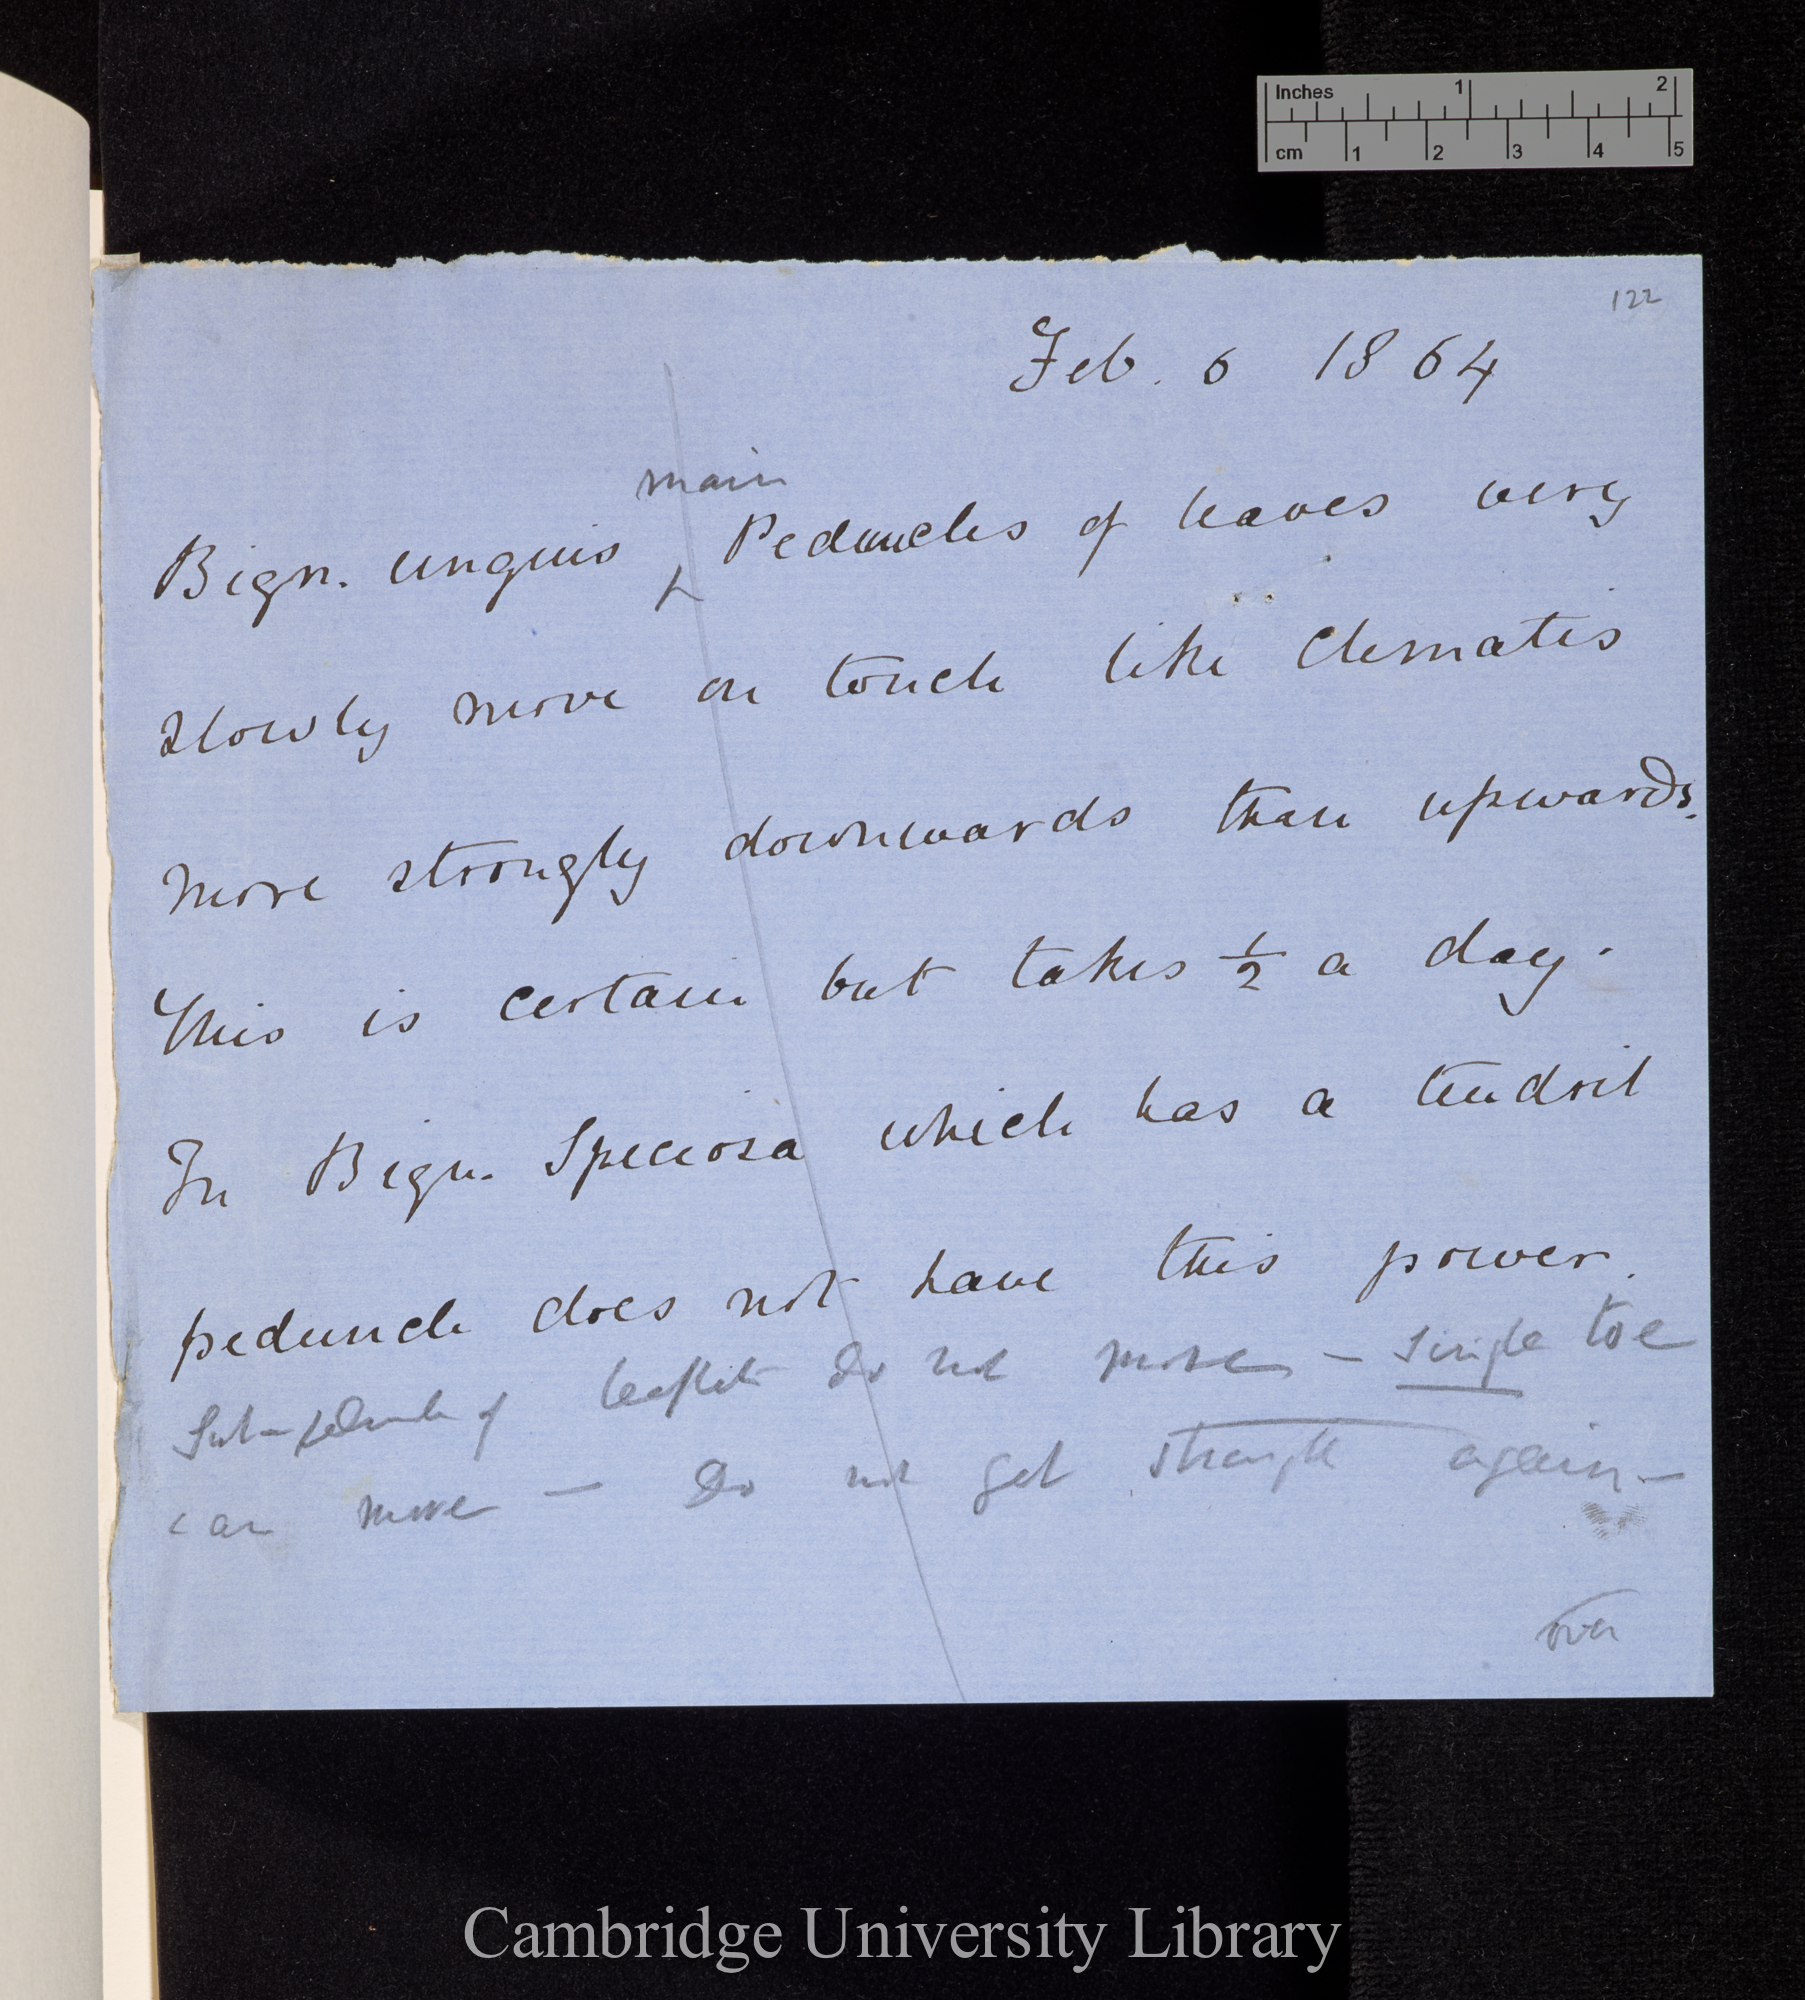 Inches 1 2
cm 1 2 3 4 5
122
Feb. 6 1864
main
Bign. unguis ^ Peduncles of leaves very
slowly move on touch like Clematis
more strongly downwards than upwards.
This is certain but takes ½ a day.
In Bign. Speciosa which has a tendril
peduncle does not have this power.
Sub-peduncle of leaflets do not move – single toe
can move – Do not get straight again –
over
Cambridge University Library